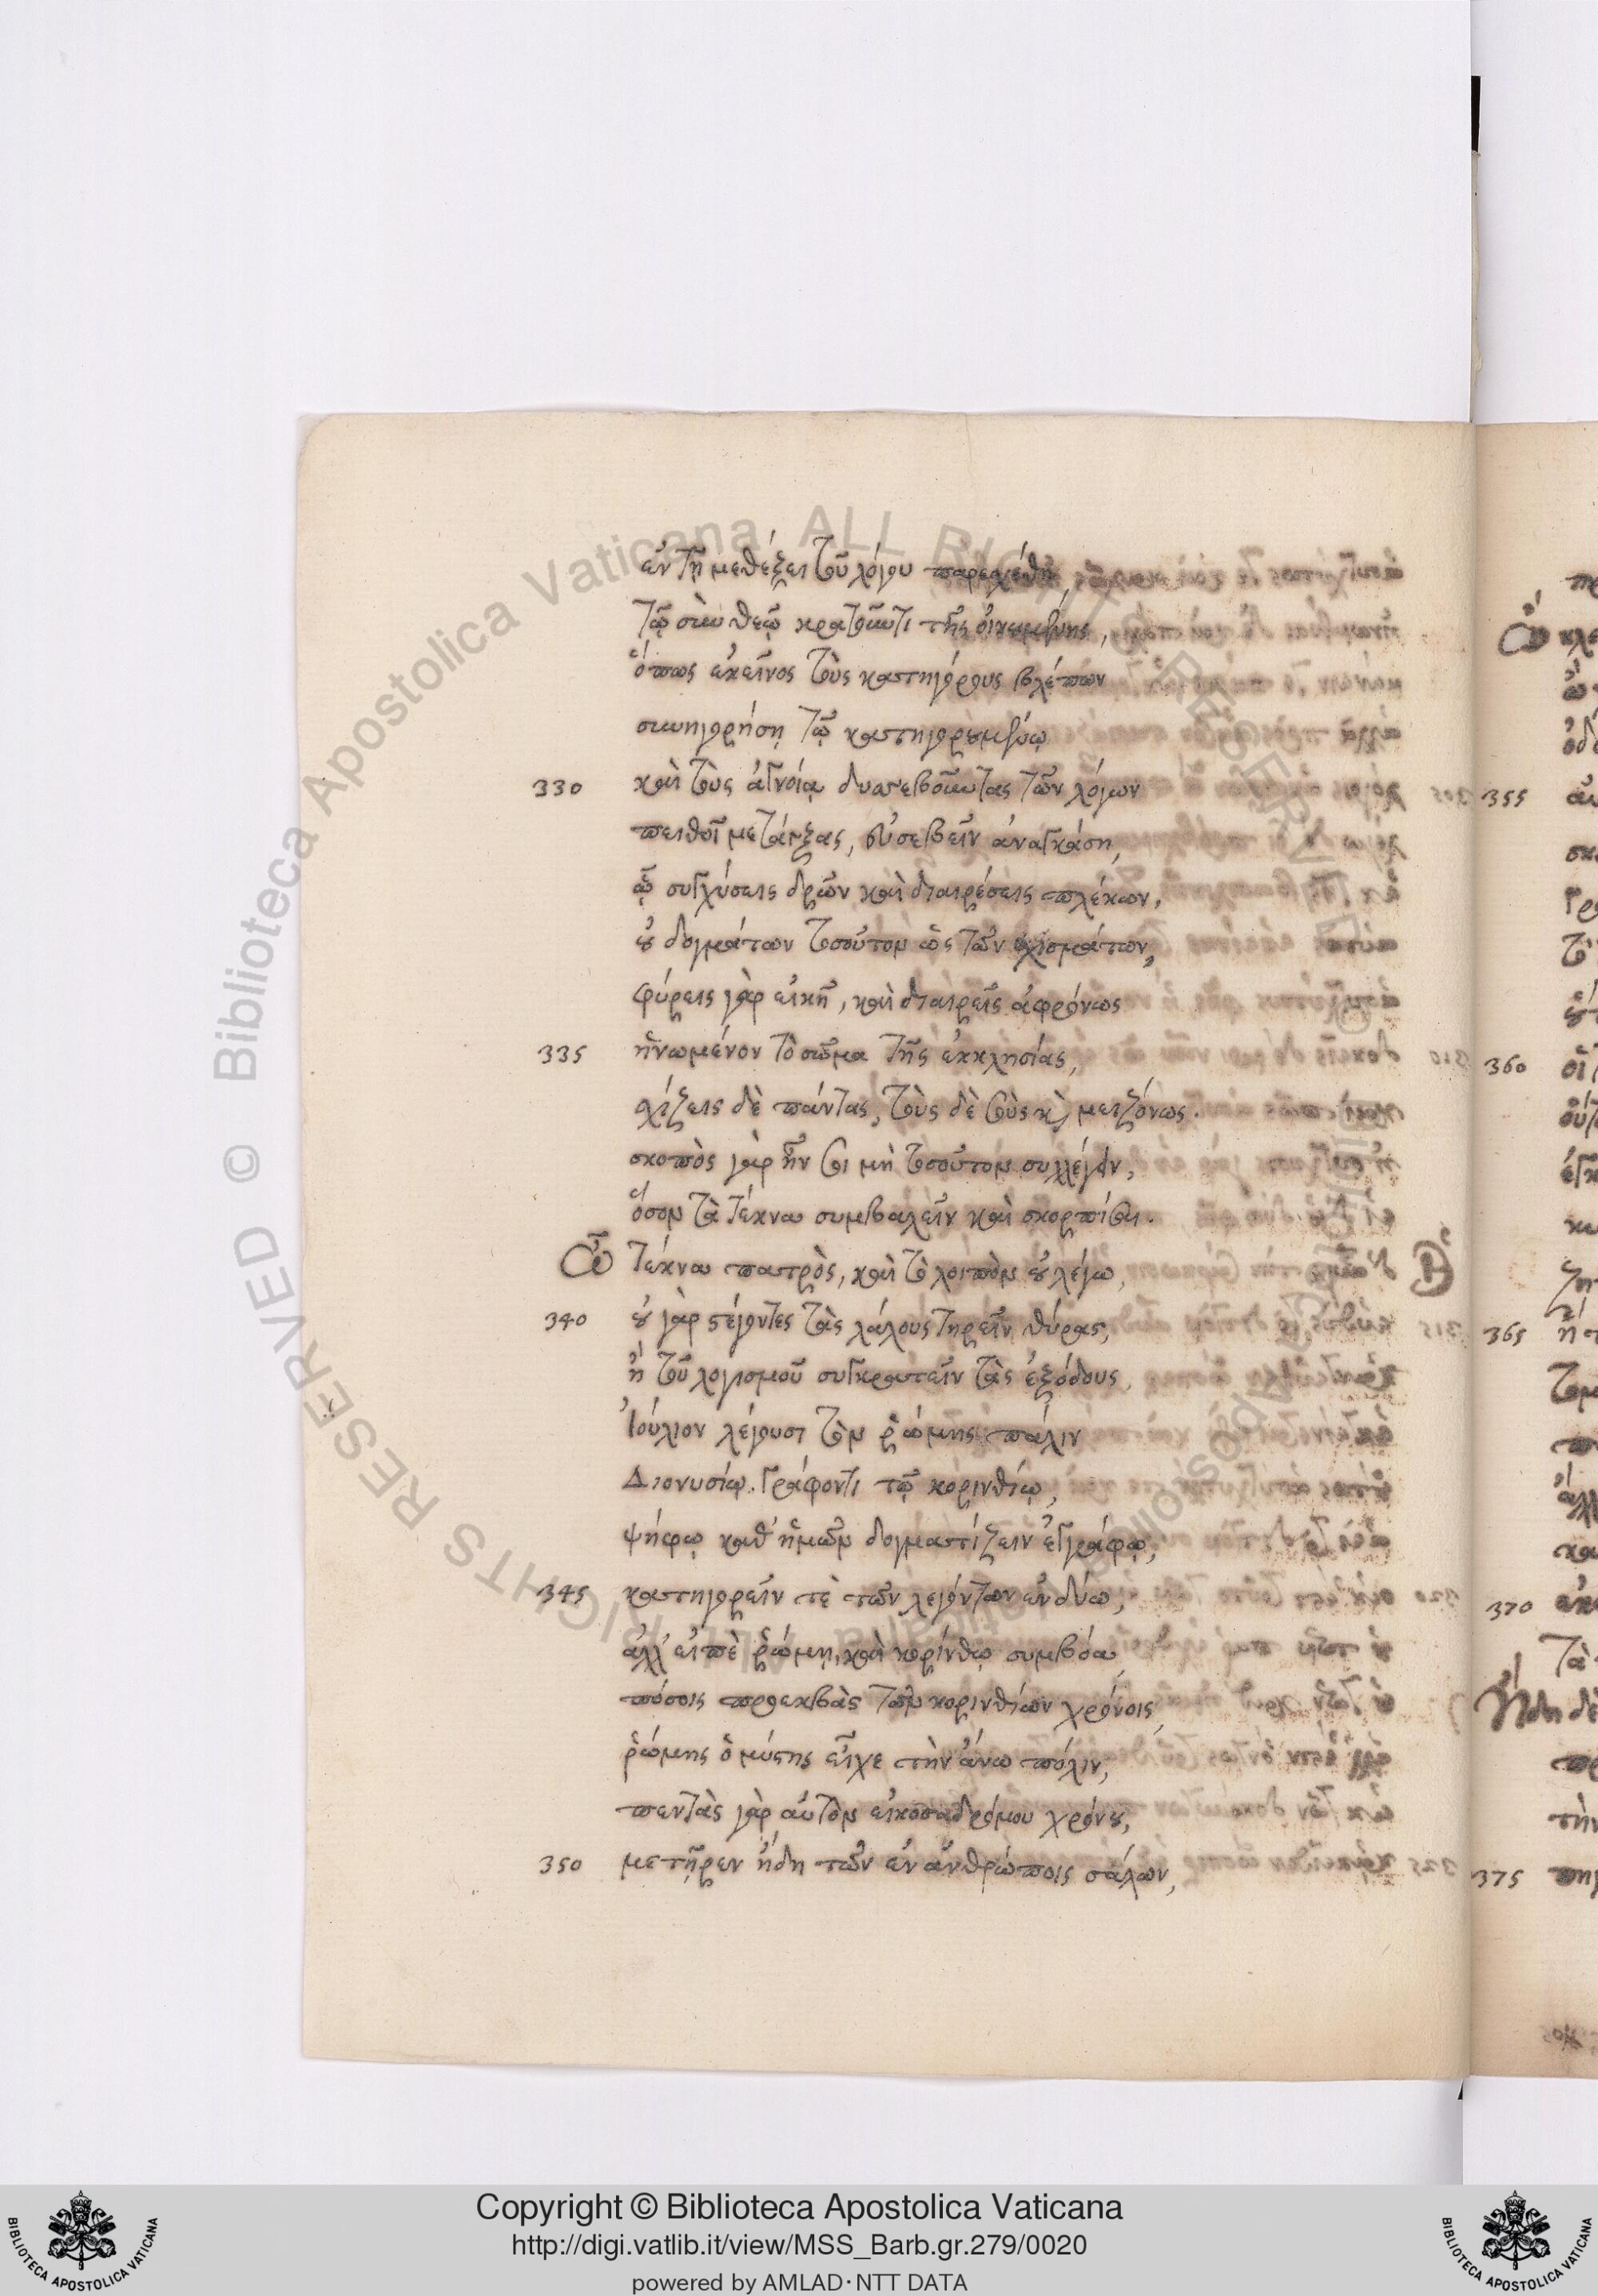 ἐν τῇ μεθέξει τοῦ λόγου παρεσχέθη,
τῷ σὺν θεῷ κρατοῦντι τῆς οἰκουμένης,
ὅπως ἐκεῖνος τοὺς κατηγόρους βλέπων
συνηγορήσῃ τῷ κατηγορουμένῳ
330 καὶ τοὺς ἀγνοίᾳ δυσσεβοῦντας τῶν λόγων
πειθοῖ μετάρξας, εὐσεβεῖν ἀναγκάσῃ,
ᾧ συγχύσεις δρῶν καὶ διαιρέσεις πλέκων,
οὐ δογμάτων τοσοῦτον ὡς τῶν σχισμάτων,
φύρεις γὰρ εἰκῇ, καὶ διαιρεῖς ἀφρόνως
335 ἡνωμένον τὸ σῶμα τῆς ἐκκλησίας,
σχίζεις δὲ πάντας, τοὺς δὲ τοὺς καὶ μειζόνως.
σκοπὸς γὰρ ἦν σοι μὴ τοσοῦτον συλλέγειν,
ὅσον τὰ τέκνα συμβαλεῖν καὶ σκορπίσαι.
Ὦ τέκνα πατρὸς, καὶ τὸ λοιπὸν οὐ λέγω,
340 οὐ γὰρ στέγοντες τὰς λάλους τηρεῖν θύρας,
ἢ τοῦ λογισμοῦ συγκρατεῖν τὰς ἐξόδους,
Ἰούλιον λέγουσι τὸν ῥώμης πάλιν
Διονυσίῳ γράφοντι τῷ κορινθίῳ,
ψήφῳ καθ' ἡμῶν δογματίζειν ἐγγράφῳ,
345 κατηγορεῖν τὲ τῶν λεγόντων ἐν δύω,
ἀλλ' εἰπὲ ῥώμῃ, καὶ κορίνθῳ συμβόα
πόσοις προεκβὰς τῶν κορινθίων χρόνοις
ῥώμης ὁ μύστης εἶχε τὴν ἄνω πόλιν,
πεντὰς γὰρ αὐτὸν εἰκοσαδρόμου χρόνου,
350 μετῆρεν ἤδη τῶν ἐν ἀνθρώποις σάλων,
355
360
365
370
Ἤδη δὲ
τὴν
375
Copyright © Biblioteca Apostolica Vaticana
http://digi.vatlib.it/view/MSS_Barb.gr.279/0020
powered by AMLAD·NTT DATA
BIBLIOTECA APOSTOLICA VATICANA
BIBLIOTECA APOSTOLICA VATICANA
© Biblioteca Apostolica Vaticana ALL RIGHTS RESERVED